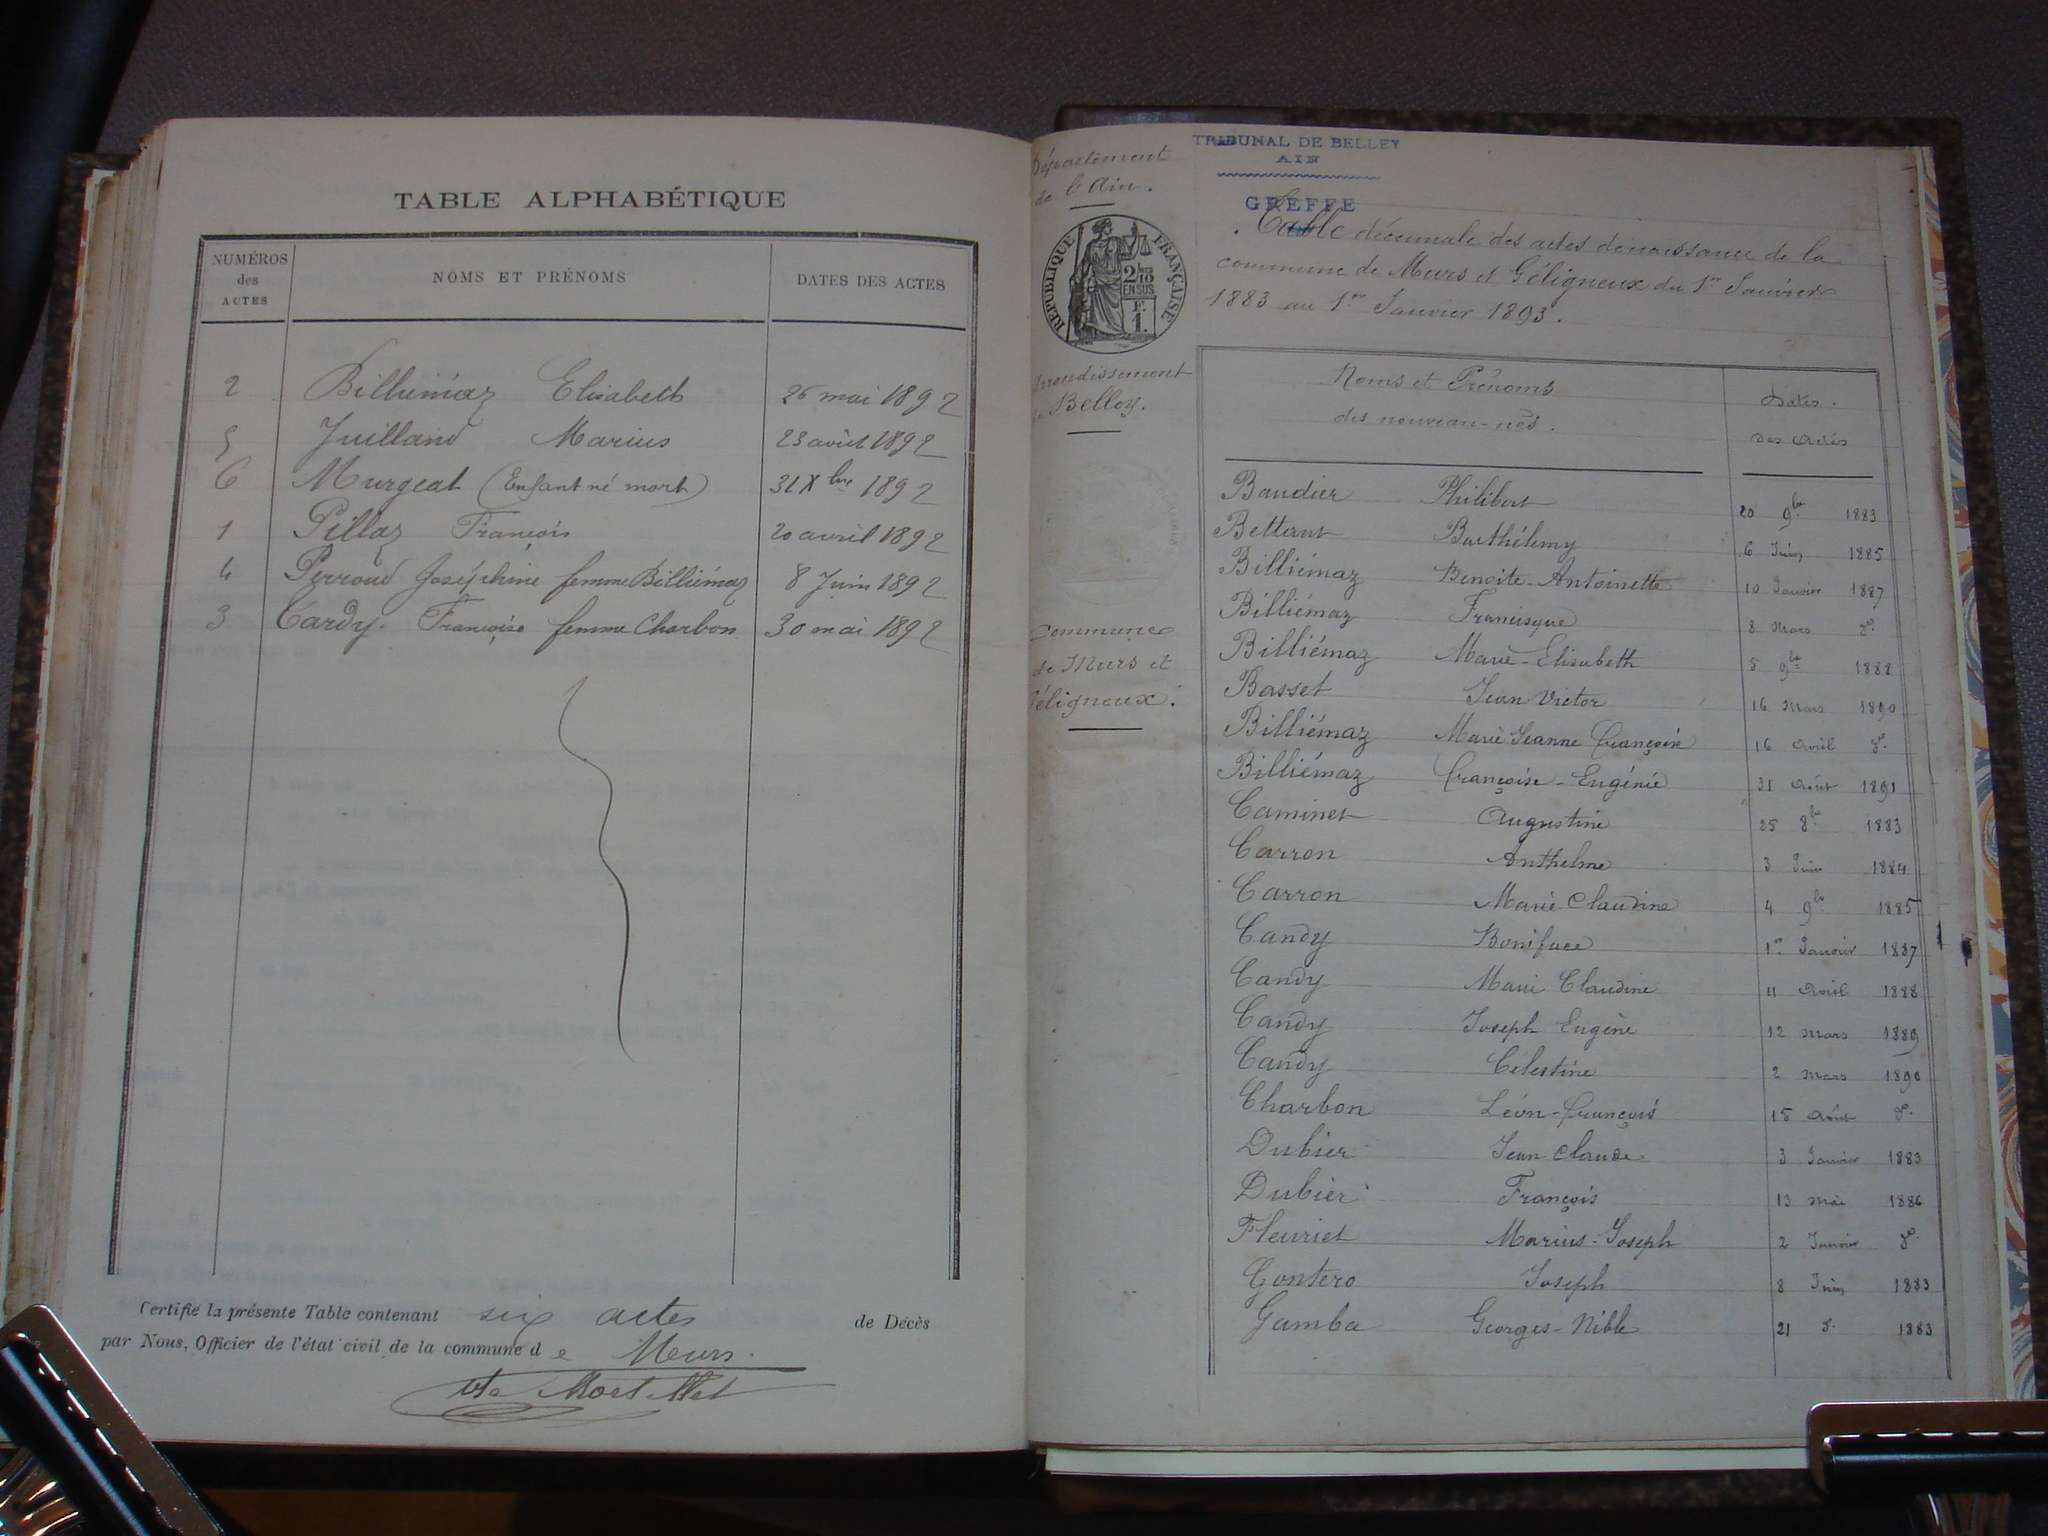 TABLE ALPHABÉTIQUE
NUMÉROS des ACTES NOMS ET PRÉNOMS DATES DES ACTES
2 Billiémaz Elisabeth 26 mai 1892
5 Juilland Marius 23 août 1892
6 Murgeat (Enfant né mort) 31 Xbre 1892
1 Pillaz François 20 avril 1892
4 Perroud Joséphine femme Billiémaz 8 Juin 1892
3 Cardy Françoise femme Charbon 30 mai 1892
Certifié la présente Table contenant six actes de Décès
par Nous, Officier de l'état civil de la commune de Murs
Département
de l'Ain.
TRIBUNAL DE BELLEY
AIN
GREFFE
RÉPUBLIQUE FRANÇAISE
2/10
EN SUS
F.
1.
Arrondissement
de Belley.
Commune
de Murs et
Géligneux.
Table décennale des actes de naissance de la
commune de Murs et Géligneux du 1er Janvier
1883 au 1er Janvier 1893.
Noms et Prénoms Dates.
des nouveau-nés. des Actes
Baudier Philibert 20 9bre 1883
Bettant Barthélemy 6 Juin 1885
Billiémaz Benoite-Antoinette 10 Janvier 1887
Billiémaz Francisque 8 Mars do.
Billiémaz Marie-Elisabeth 5 9bre 1888
Basset Jean Victor 16 Mars 1890
Billiémaz Marie Jeanne Françoise 16 Avril do.
Billiémaz Françoise-Eugénie 31 Août 1891
Caminet Augustine 25 8bre 1883
Carron Anthelme 3 Juin 1884
Carron Marie Claudine 4 9bre 1885
Candy Boniface 1er Janvier 1887
Candy Marie Claudine 11 Avril 1888
Candy Joseph Eugène 12 Mars 1889
Candy Célestine 2 Mars 1890
Charbon Léon-François 15 Août do.
Dubier Jean Claude 3 Janvier 1883
Dubier François 13 Mai 1886
Fleuriet Marius-Joseph 2 Janvier do.
Gontero Joseph 8 Juin 1883
Gamba Georges-Nible 21 d. 1883